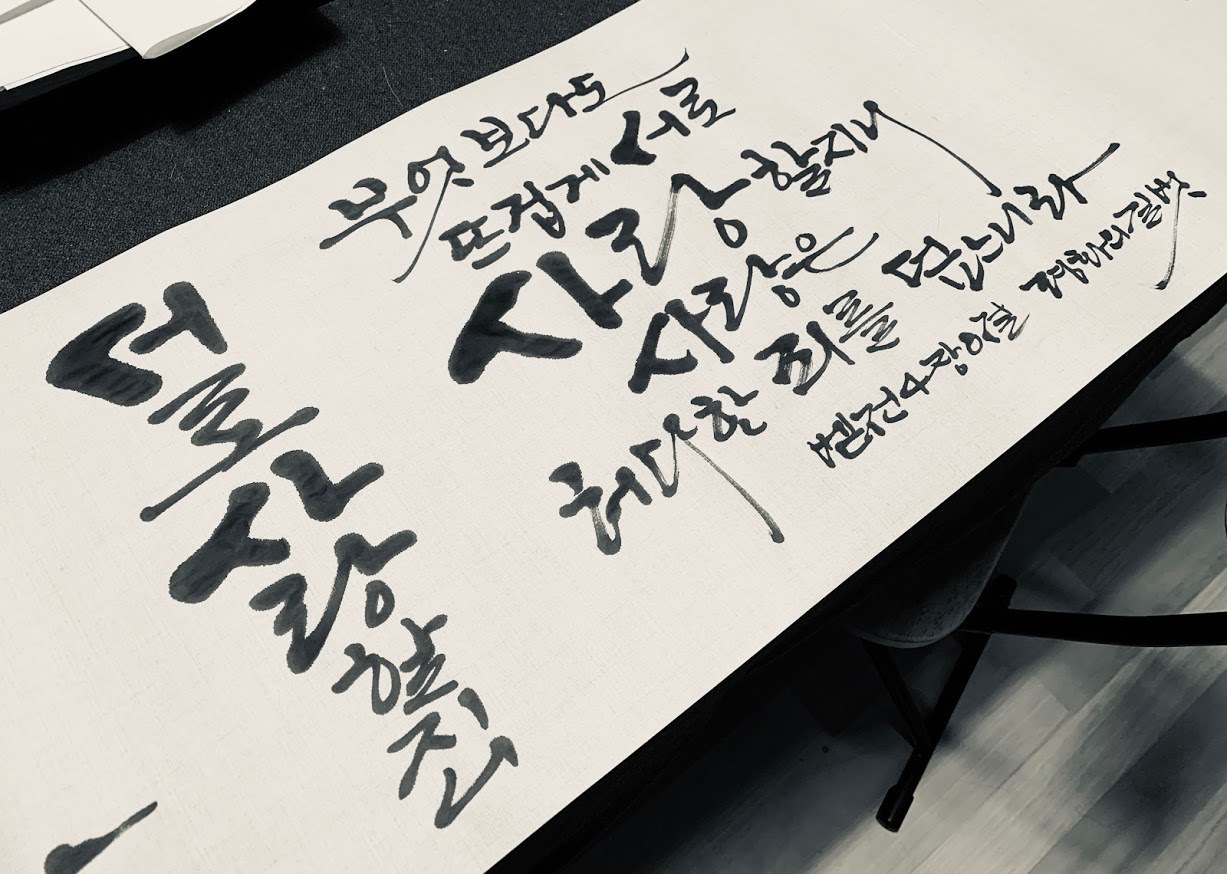 무엇보다도
뜨겁게 서로
사랑할지니
사랑은
허다한 죄를 덮느니라
벧전4장8절 평화의길벗
서로
사랑
할
지니